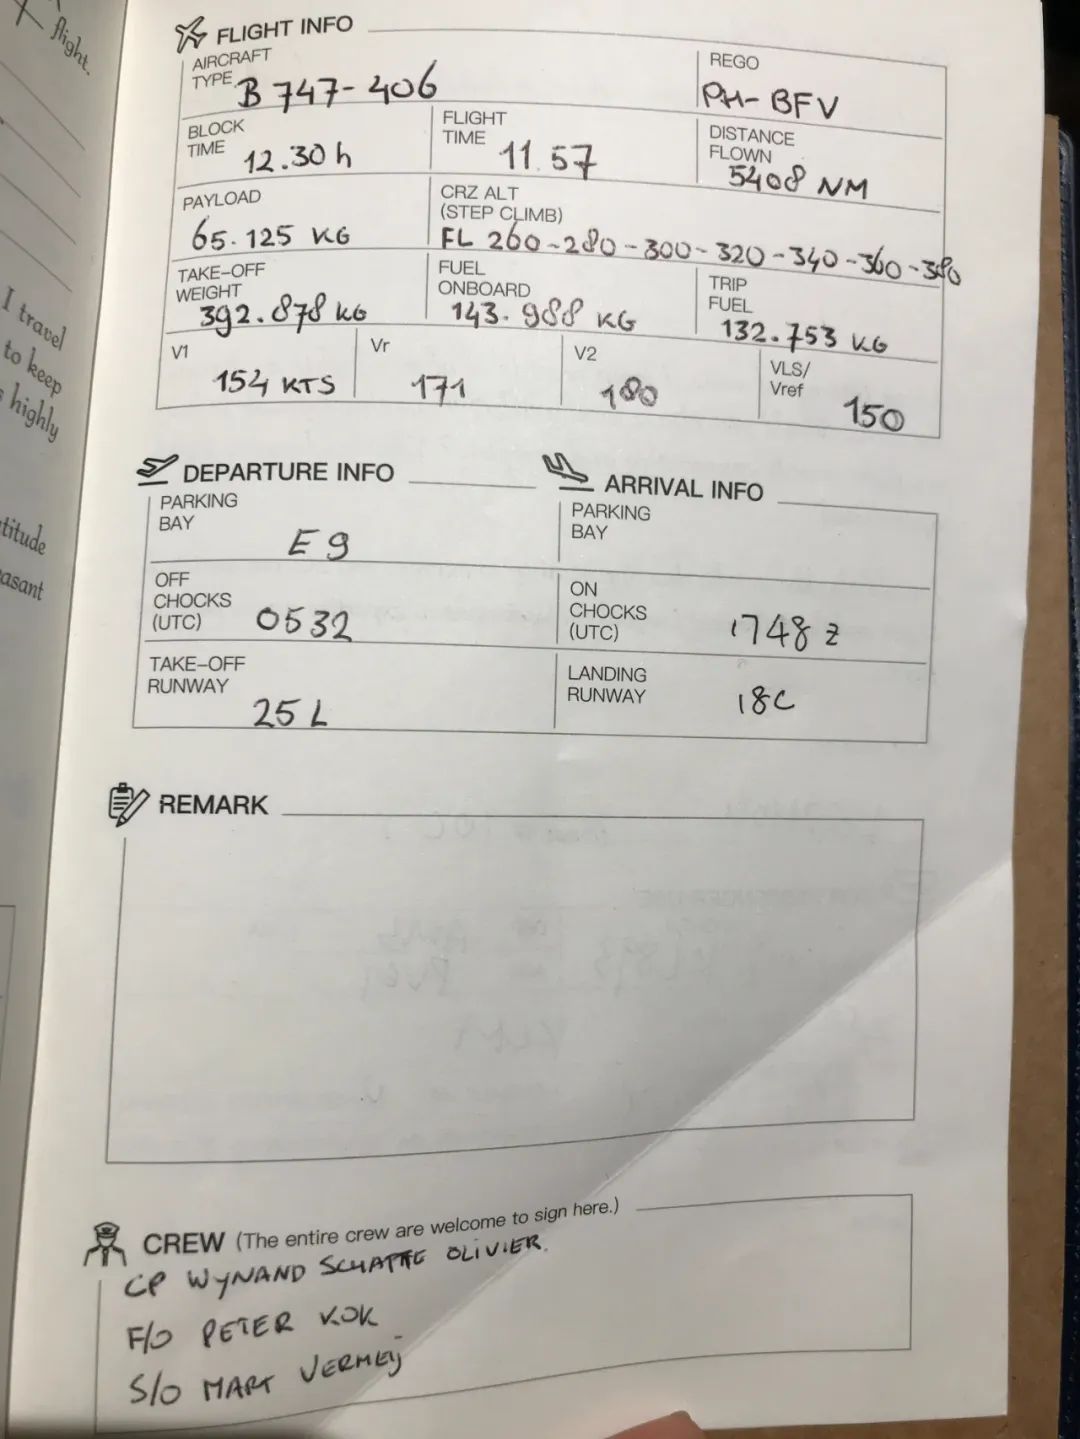 flight.
I travel
to keep
highly
titude
easant
FLIGHT INFO
AIRCRAFT TYPE B 747-406
REGO PH-BFV
BLOCK TIME 12.30 h
FLIGHT TIME 11.57
DISTANCE FLOWN 5408 NM
PAYLOAD 65.125 KG
CRZ ALT (STEP CLIMB) FL 260-280-300-320-340-360-380
TAKE-OFF WEIGHT 392.878 KG
FUEL ONBOARD 143.988 KG
TRIP FUEL 132.753 KG
V1 154 KTS
Vr 171
V2 180
VLS/ Vref 150
DEPARTURE INFO
PARKING BAY E9
OFF CHOCKS (UTC) 0532
TAKE-OFF RUNWAY 25L
ARRIVAL INFO
PARKING BAY
ON CHOCKS (UTC) 1748 z
LANDING RUNWAY 18C
REMARK
CREW (The entire crew are welcome to sign here.)
CP WYNAND OLIVIER.
F/O PETER KOK
S/O MART VERMEIJ